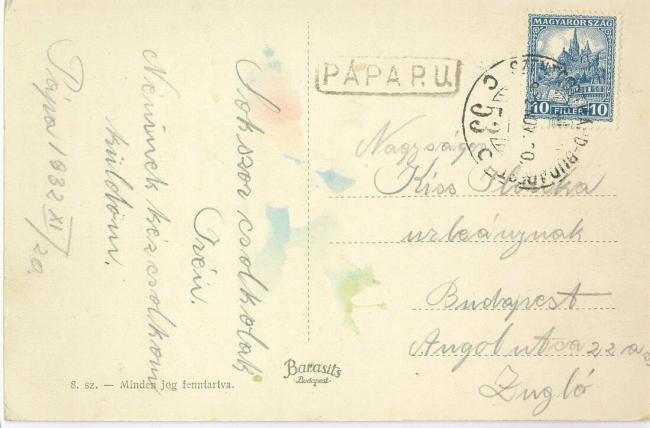 Sokszor csolkolak
Irén.
Neninek kézcsolkom
küldöm.
Pápa 1932 XI/20.
8. sz. — Minden jog fenntartva.
Barasits
Budapest
PÁPA P.U.
MAGYARORSZÁG
10 FILLÉR 10
53
Nagyságos
Kiss Ilonka
urleánynak
Budapest
Angol utca 22 a
Zugló